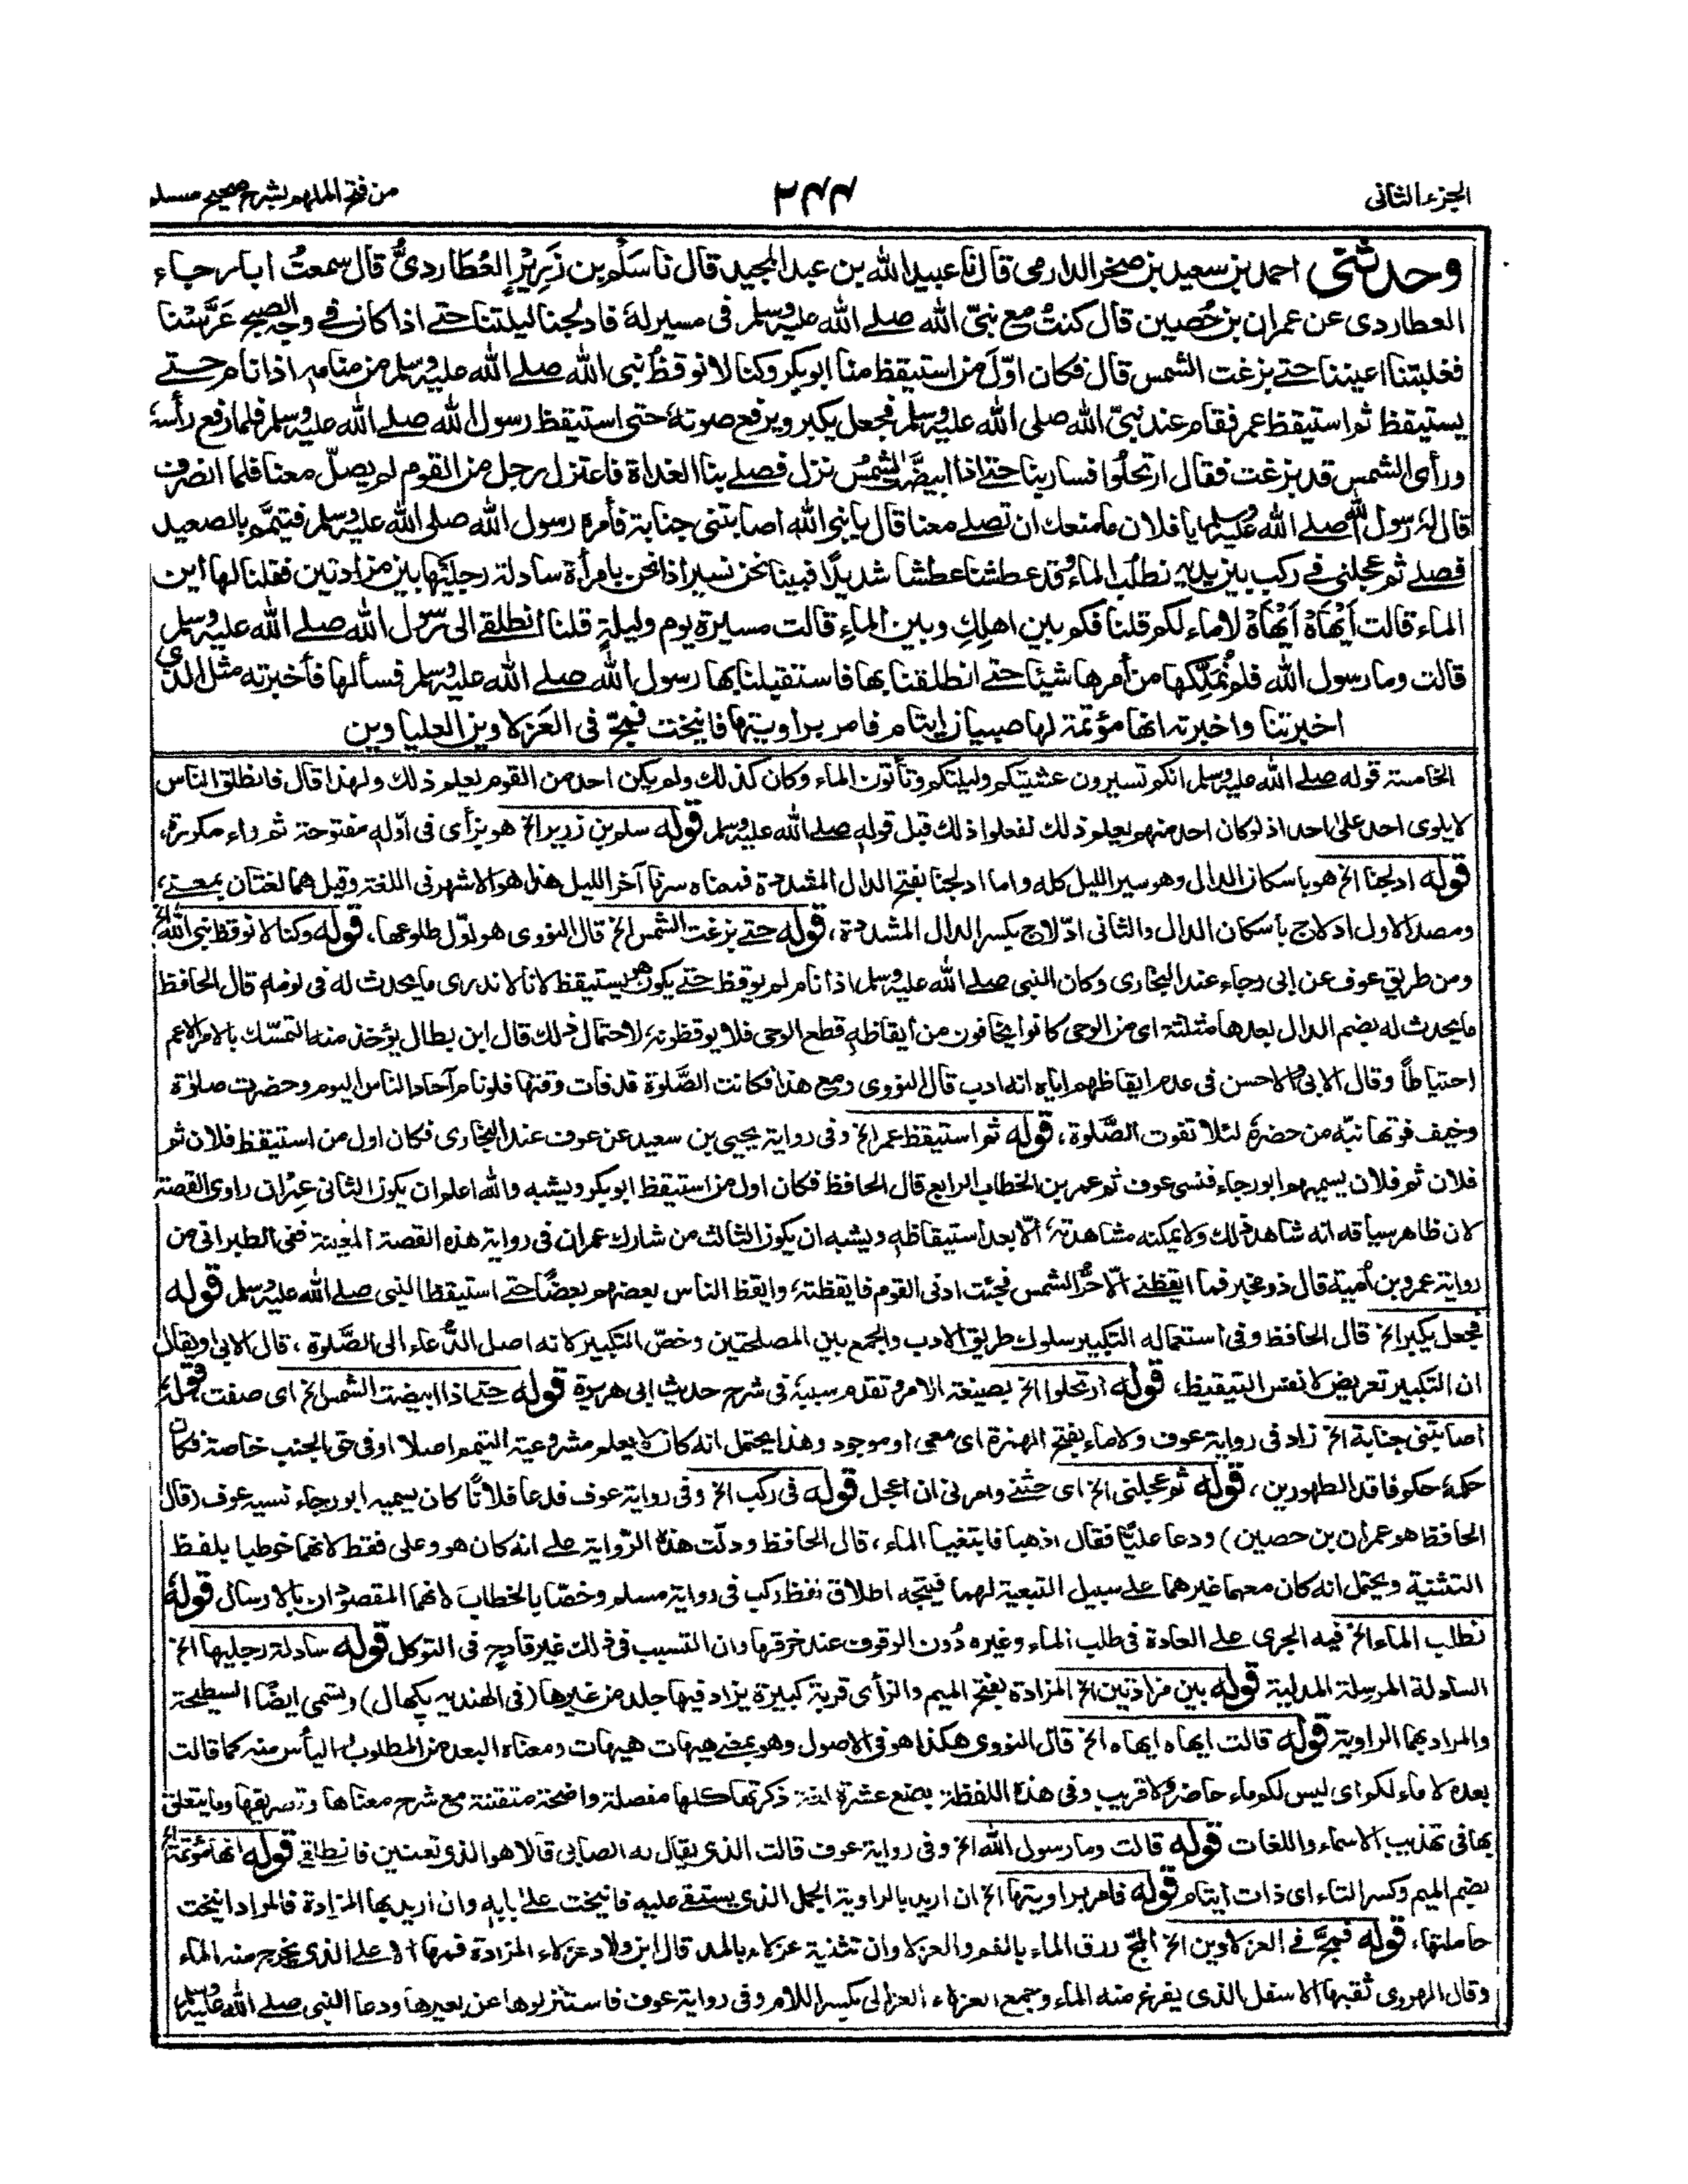 الجزء الثانی
٢٤٤
من فتح الملهم بشرح صحیح مسلم
وحدثنی احمد بن سعید بن صخر الدارمی قال نا عبید الله بن عبد المجید قال نا سَلْم بن زَرِیْرٍ العُطَاردیُّ قال سمعتُ ابا رجاء
العطاردی عن عمران بن حُصین قال کنتُ مع نبیّ الله صلے الله علیه وسلم فی مسیر لهٗ فادلجنا لیلتنا حتے اذا کان فے وجه الصبح عَرَّسْنا
فغلبتنا اعیننا حتے بزغت الشمس قال فکان اوّلَ من استیقظ منا ابو بکر وکنا لا نوقظ نبی الله صلے الله علیه وسلم من منامه اذا نام حتے
یستیقظ ثم استیقظ عمر فقام عند نبیّ الله صلی الله علیه وسلم فجعل یکبر ویرفع صوتهٗ حتی استیقظ رسول الله صلے الله علیه وسلم فلما رفع رأسه
ورأی الشمس قد بزغت فقال ارتحلُوا فسار بنا حتے اذا ابیضّت الشمسُ نزل فصلے بنا الغداة فاعتزل رجل من القوم لم یصلّ معنا فلما انصرف
قال له رسول الله صلے الله علیه وسلم یا فلان ما منعك ان تصلے معنا قال یا نبی الله اصابتنی جنابة فأمره رسول الله صلی الله علیه وسلم فتیمّم بالصعید
فصلے ثم عجلنی فے رکب بین یدیه نطلب الماء وقد عطشنا عطشا شدیدًا فبینا نحن نسیر اذا نحن بامرأة سادلة رجلیْها بین مزادتین فقلنا لها این
الماء قالت اَیْهَاهْ اَیْهَاهْ لا ماء لکم قلنا فکم بین اهلِكِ وبین الماءِ قالت مسیرة یوم ولیلةٍ قلنا انطلقے الی رسول الله صلے الله علیه وسلم
قالت وما رسول الله فلم نُمَلِّکها من أمرها شیئا حتے انطلقنا بها فاستقبلنا بها رسول الله صلے الله علیه وسلم فسألها فأخبرته مثل الذی
اخبرتنا واخبرته انها مؤتمة لها صبیان ایتام فامر براویتها فانیخت فمجّ فی العَزْلاوین العلیاوین
الخامسة قوله صلے الله علیه وسلم انکم تسیرون عشیتکم ولیلتکم وتأتون الماء وکان کذلك ولم یکن احد من القوم یعلم ذلك ولهذا قال فانطلق الناس
لا یلوی احد علیٰ احد اذ لو کان احد منهم یعلم ذلك لفعلوا ذلك قبل قولهٖ صلے الله علیه وسلم قوله سلم بن زریر الخ هو بزأی فی اوّلهٖ مفتوحة ثم راء مکررة،
قوله ادلجنا الخ هو باسکان الدال وهو سیر اللیل کله واما ادلجنا بفتح الدال المشددة فمعناه سرنا آخر اللیل هذا هو الاشهر فی اللغة وقیل هما لغتان بمعنے،
ومصدر الاول ادلاج بأسکان الدال والثانی ادّلاج بکسر الدال المشددة، قوله حتے بزغت الشمس الخ قال النووی هو اوّل طلوعها، قوله وکنا لا نوقظ نبی الله الخ
ومن طریق عوف عن ابی رجاء عند البخاری وکان النبی صلے الله علیه وسلم اذا نام لم یوقظ حتے یکون هو یستیقظ لانا لا ندری ما یحدث له فی نومه قال الحافظ
ما یحدث له بضم الدال بعدها مثلثة ای من الوحی کانوا یخافون من أیقاظهٖ قطع الوحی فلا یوقظونه لاحتمال ذلك قال ابن بطال یؤخذ منه التمسّك بالامر الاعم
احتیاطًا وقال الابی والاحسن فی عدم ایقاظهم ایاه انه ادب قال النووی ومع هذا فکانت الصَّلوة قد فات وقتها فلو نام آحاد الناس الیوم وحضرت صلوٰة
وخیف فوتها نبّه من حضرهٗ لئلا تفوت الصَّلوة، قوله ثم استیقظ عمر الخ وفی روایة یحیی بن سعید عن عوف عند البخاری فکان اول من استیقظ فلان ثم
فلان ثم فلان یسمیهم ابو رجاء فنسی عوف ثم عمر بن الخطاب الرابع قال الحافظ فکان اول من استیقظ ابو بکر ویشبه والله اعلم ان یکون الثانی عمران راوی القصة
لان ظاهر سیاقه انه شاهد ذلك ولا یمکنه مشاهدته الّا بعد استیقاظهٖ ویشبه ان یکون الثالث من شارك عمران فی روایة هذه القصة المعینة ففی الطبرانی من
روایة عمرو بن اُمیة قال ذو مخبر فما ایقظنے الّا حرُّ الشمس فجئت ادنی القوم فایقظته وایقظ الناس بعضهم بعضًا حتے استیقظ النبی صلے الله علیه وسلم قوله
فجعل یکبر الخ قال الحافظ وفی استعماله التکبیر سلوك طریق الادب والجمع بین المصلحتین وخصّ التکبیر لانه اصل الدُّعاء الی الصَّلوة، قال الابی او یقال
ان التکبیر تعریض لا نفس التیقیظ، قوله ارتحلوا الخ بصیغة الامر وتقدم سببهٗ فی شرح حدیث ابی هریرة قوله حتے اذا ابیضت الشمس الخ ای صفت قوله
اصابتنی جنابة الخ زاد فی روایة عوف ولا ماء بفتح الهمزة ای معی او موجود وهذا یحتمل انه کان لا یعلم مشروعیة التیمم اصلا او فی حق الجنب خاصة فکان
حکمهٗ حکم فاقد الطهورین، قوله ثم عجلنی الخ ای حثنے وامرنی ان اعجل قوله فی رکب الخ وفی روایة عوف فدعا فلانًا کان یسمیه ابو رجاء نسیه عوف (قال
الحافظ هو عمران بن حصین) ودعا علیًّا فقال اذهبا فابتغیا الماء، قال الحافظ ودلّت هذه الرّوایة علے انه کان هو وعلی فقط لانهما خوطبا بلفظ
التثنیة ویحتمل انه کان معهما غیرهما علے سبیل التبعیة لهما فیتجه اطلاق لفظ رکب فی روایة مسلم وخصّا بالخطاب لانهما المقصودان بالارسال قوله
نطلب الماء الخ فیه الجری علے العادة فی طلب الماء وغیره دُون الوقوف عند خرقها وان التسبب فی ذلك غیر قادحٍ فی التوکل قوله سادلة رجلیها الخ
السادلة المرسلة المدلیة قوله بین مزادتین الخ المزادة بفتح المیم والزأی قربة کبیرة یزاد فیها جلد من غیرها (فی الهندیه پکهال) وتسمی ایضًا السطیحة
والمراد بهما الراویة قوله قالت ایهاه ایهاه الخ قال النووی هکذا هو فی الاصول وهو بمعنے هیهات هیهات ومعناه البعد من المطلوب والیأس منه کما قالت
بعده لا ماء لکم ای لیس لکم ماء حاضر ولا قریب وفی هذه اللفظة بضع عشرة لغة ذکرتها کلها مفصلة واضحة متقنة مع شرح معناها وتصریفها وما یتعلق
بها فی تهذیب الاسماء واللغات قوله قالت وما رسول الله الخ وفی روایة عوف قالت الذی یقال له الصابی قالا هو الذی تعنین فانطلقے قوله انها مؤتمة الخ
بضم المیم وکسر التاء ای ذات ایتام قوله فامر براویتها الخ ان ارید بالراویة الجمل الذی یستقے علیه فانیخت علیٰ بابهٖ وان ارید بها المزادة فالمراد انیخت
حاملتها، قوله فمجّ فے العزلاوین الخ المجّ زرق الماء بالفم والعزلاوان تثنیة عزلاء بالمد قال ابن ولاد عزلاء المزادة فمها الاعلے الذی یخرج منه الماء
وقال الهروی ثقبها الاسفل الذی یفرغ منه الماء وجمع العزلاء العزالی بکسر اللام وفی روایة عوف فاستنزلوها عن بعیرها ودعا النبی صلے الله علیه وسلم